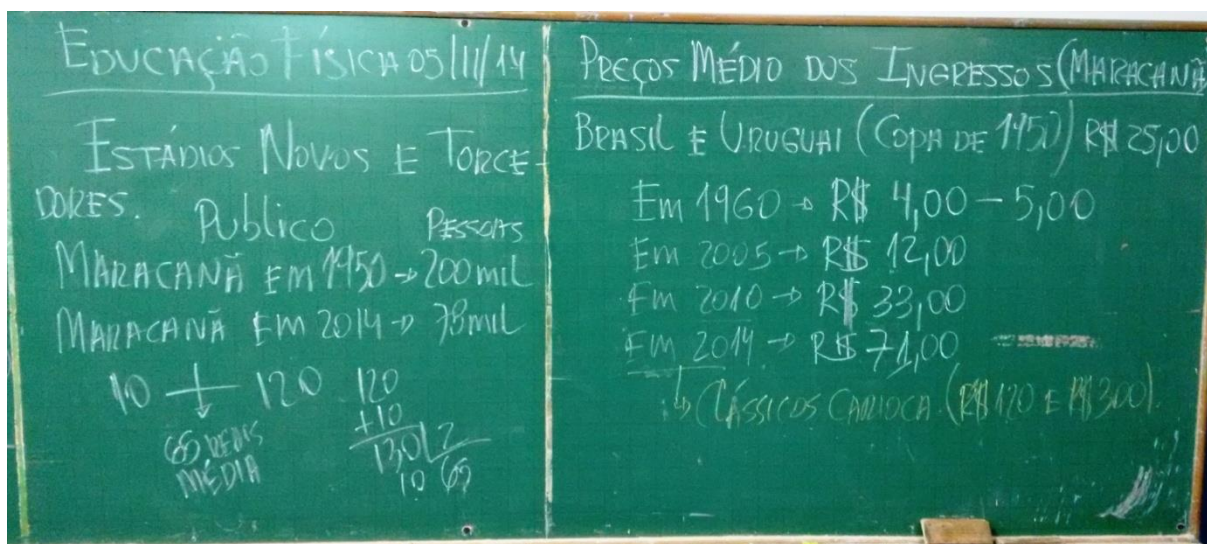 EDUCAÇÃO FÍSICA 05/11/14
ESTÁDIOS NOVOS E TORCE-
DORES.
Publico PESSOAS
MARACANÃ EM 1950 → 200 MIL
MARACANÃ EM 2014 → 78 MIL
10 + 120
65 REAIS
MÉDIA
120
+10
130 2
10 65
PREÇOS MÉDIO DOS INGRESSOS (MARACANÃ
BRASIL E URUGUAI (COPA DE 1950) R$ 25,00
Em 1960 → R$ 4,00 – 5,00
Em 2005 → R$ 12,00
Em 2010 → R$ 33,00
Em 2014 → R$ 71,00
↳ CLÁSSICOS CARIOCA. (R$ 120 E R$ 300).